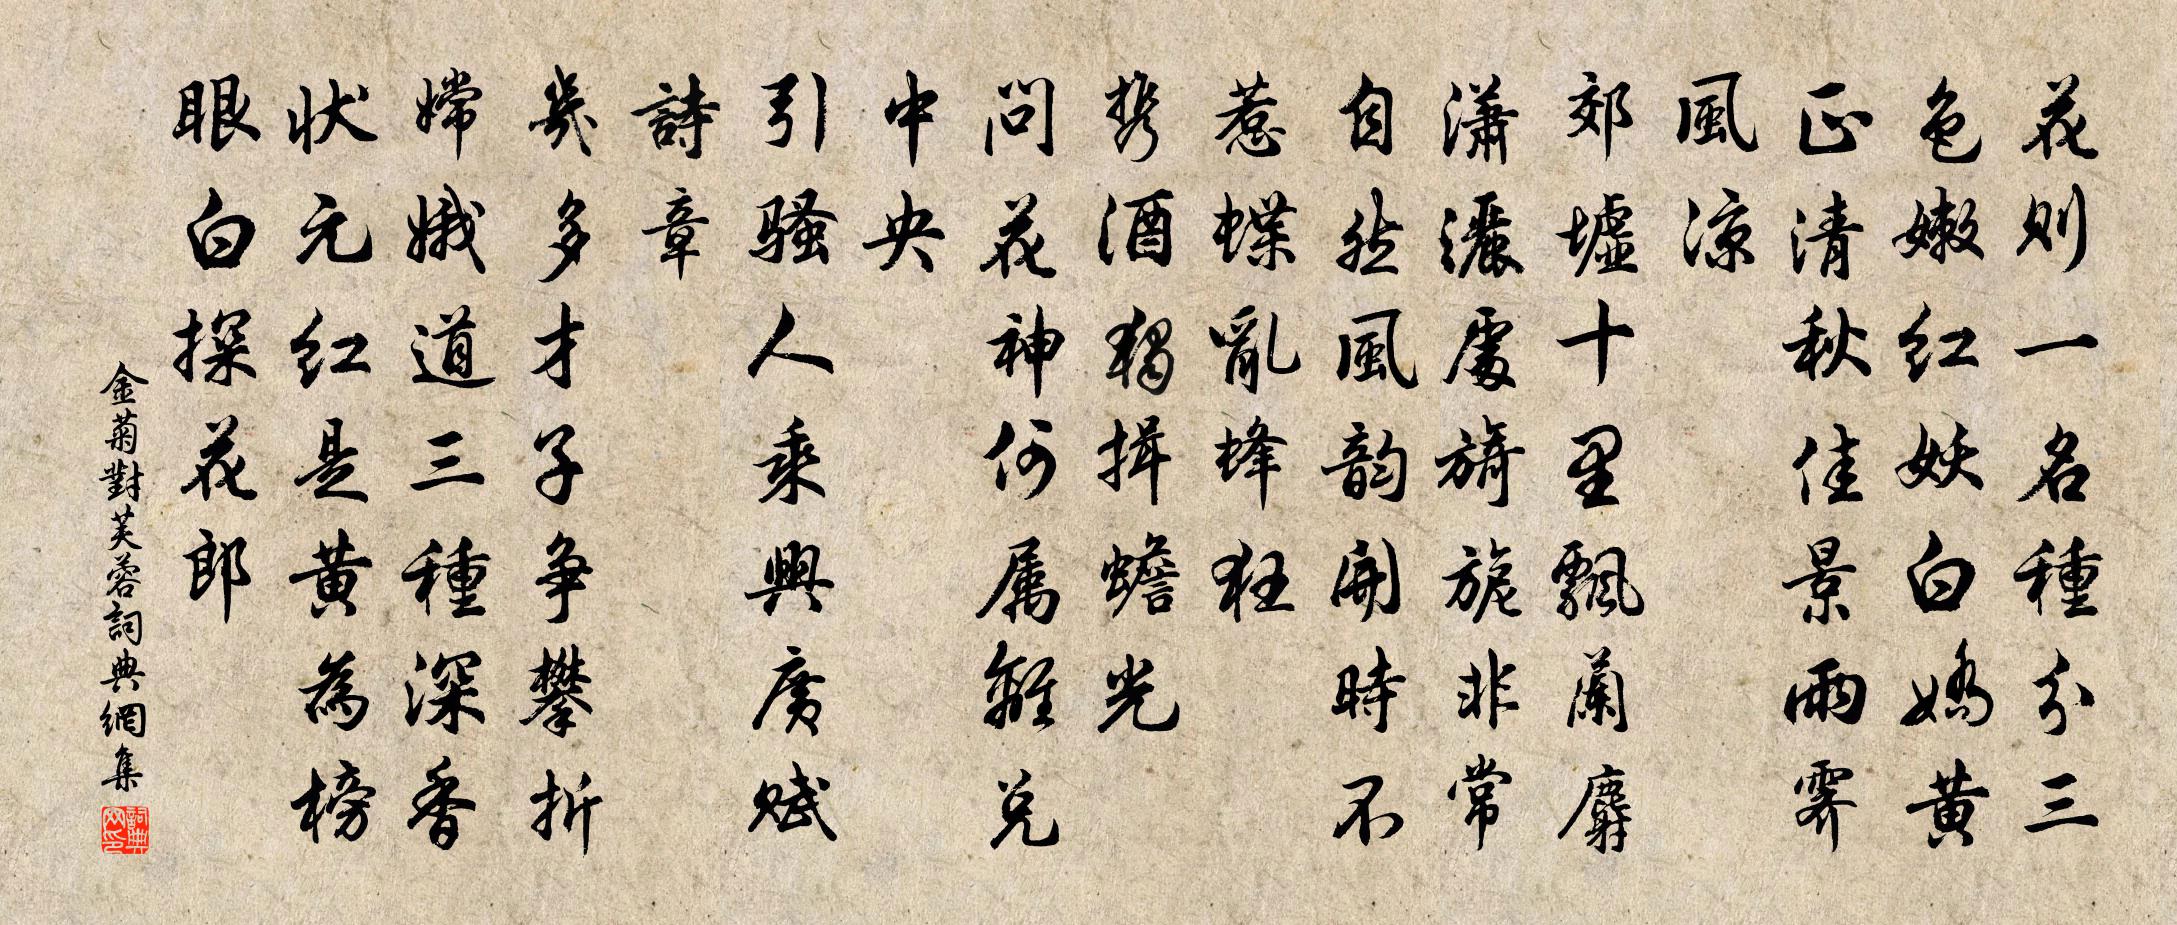 花則一名種分三
色嫩紅妖白嬌黃
正清秋佳景雨霽
風涼
郊墟十里飄蘭麝
瀟灑處旖旎非常
自然風韵開時不
惹蝶亂蜂狂
携酒獨揖蟾光
問花神何屬離兌
中央
引騷人乘興廣賦
詩章
幾多才子爭攀折
嫦娥道三種深香
狀元紅是黃為榜
眼白探花郎
金菊對芙蓉詞典網集
詞典网印